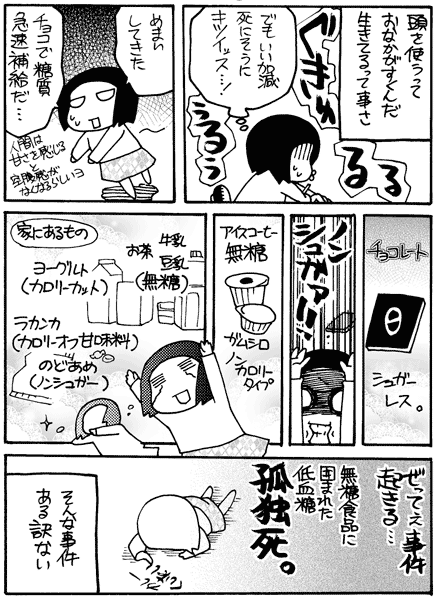 頭を使うって
おなかがすくんだ
生きてるって事さ
ぐきゅ
るる
うるう
でもいい加減
死にそうに
キツイッス…!
めまい
してきた
チョコで糖質
急速補給だ…
人間は
甘さを感じると
空腹感が
なくなるらしいヨ
チョコレート
シュガー
レス。
ノン
シュガァー!!
アイスコーヒー
無糖
ガムシロ
ノン
カロリー
タイプ
牛乳
お茶
豆乳
(無糖)
家にあるもの
ヨーグルト
(カロリーカット)
ラカンカ
(カロリーオフ甘味料)
のどあめ
(ノンシュガー)
ぜってぇ事件
起きる…
無糖食品に
囲まれた
低血糖
孤独死。
そんな事件
ある訳ない